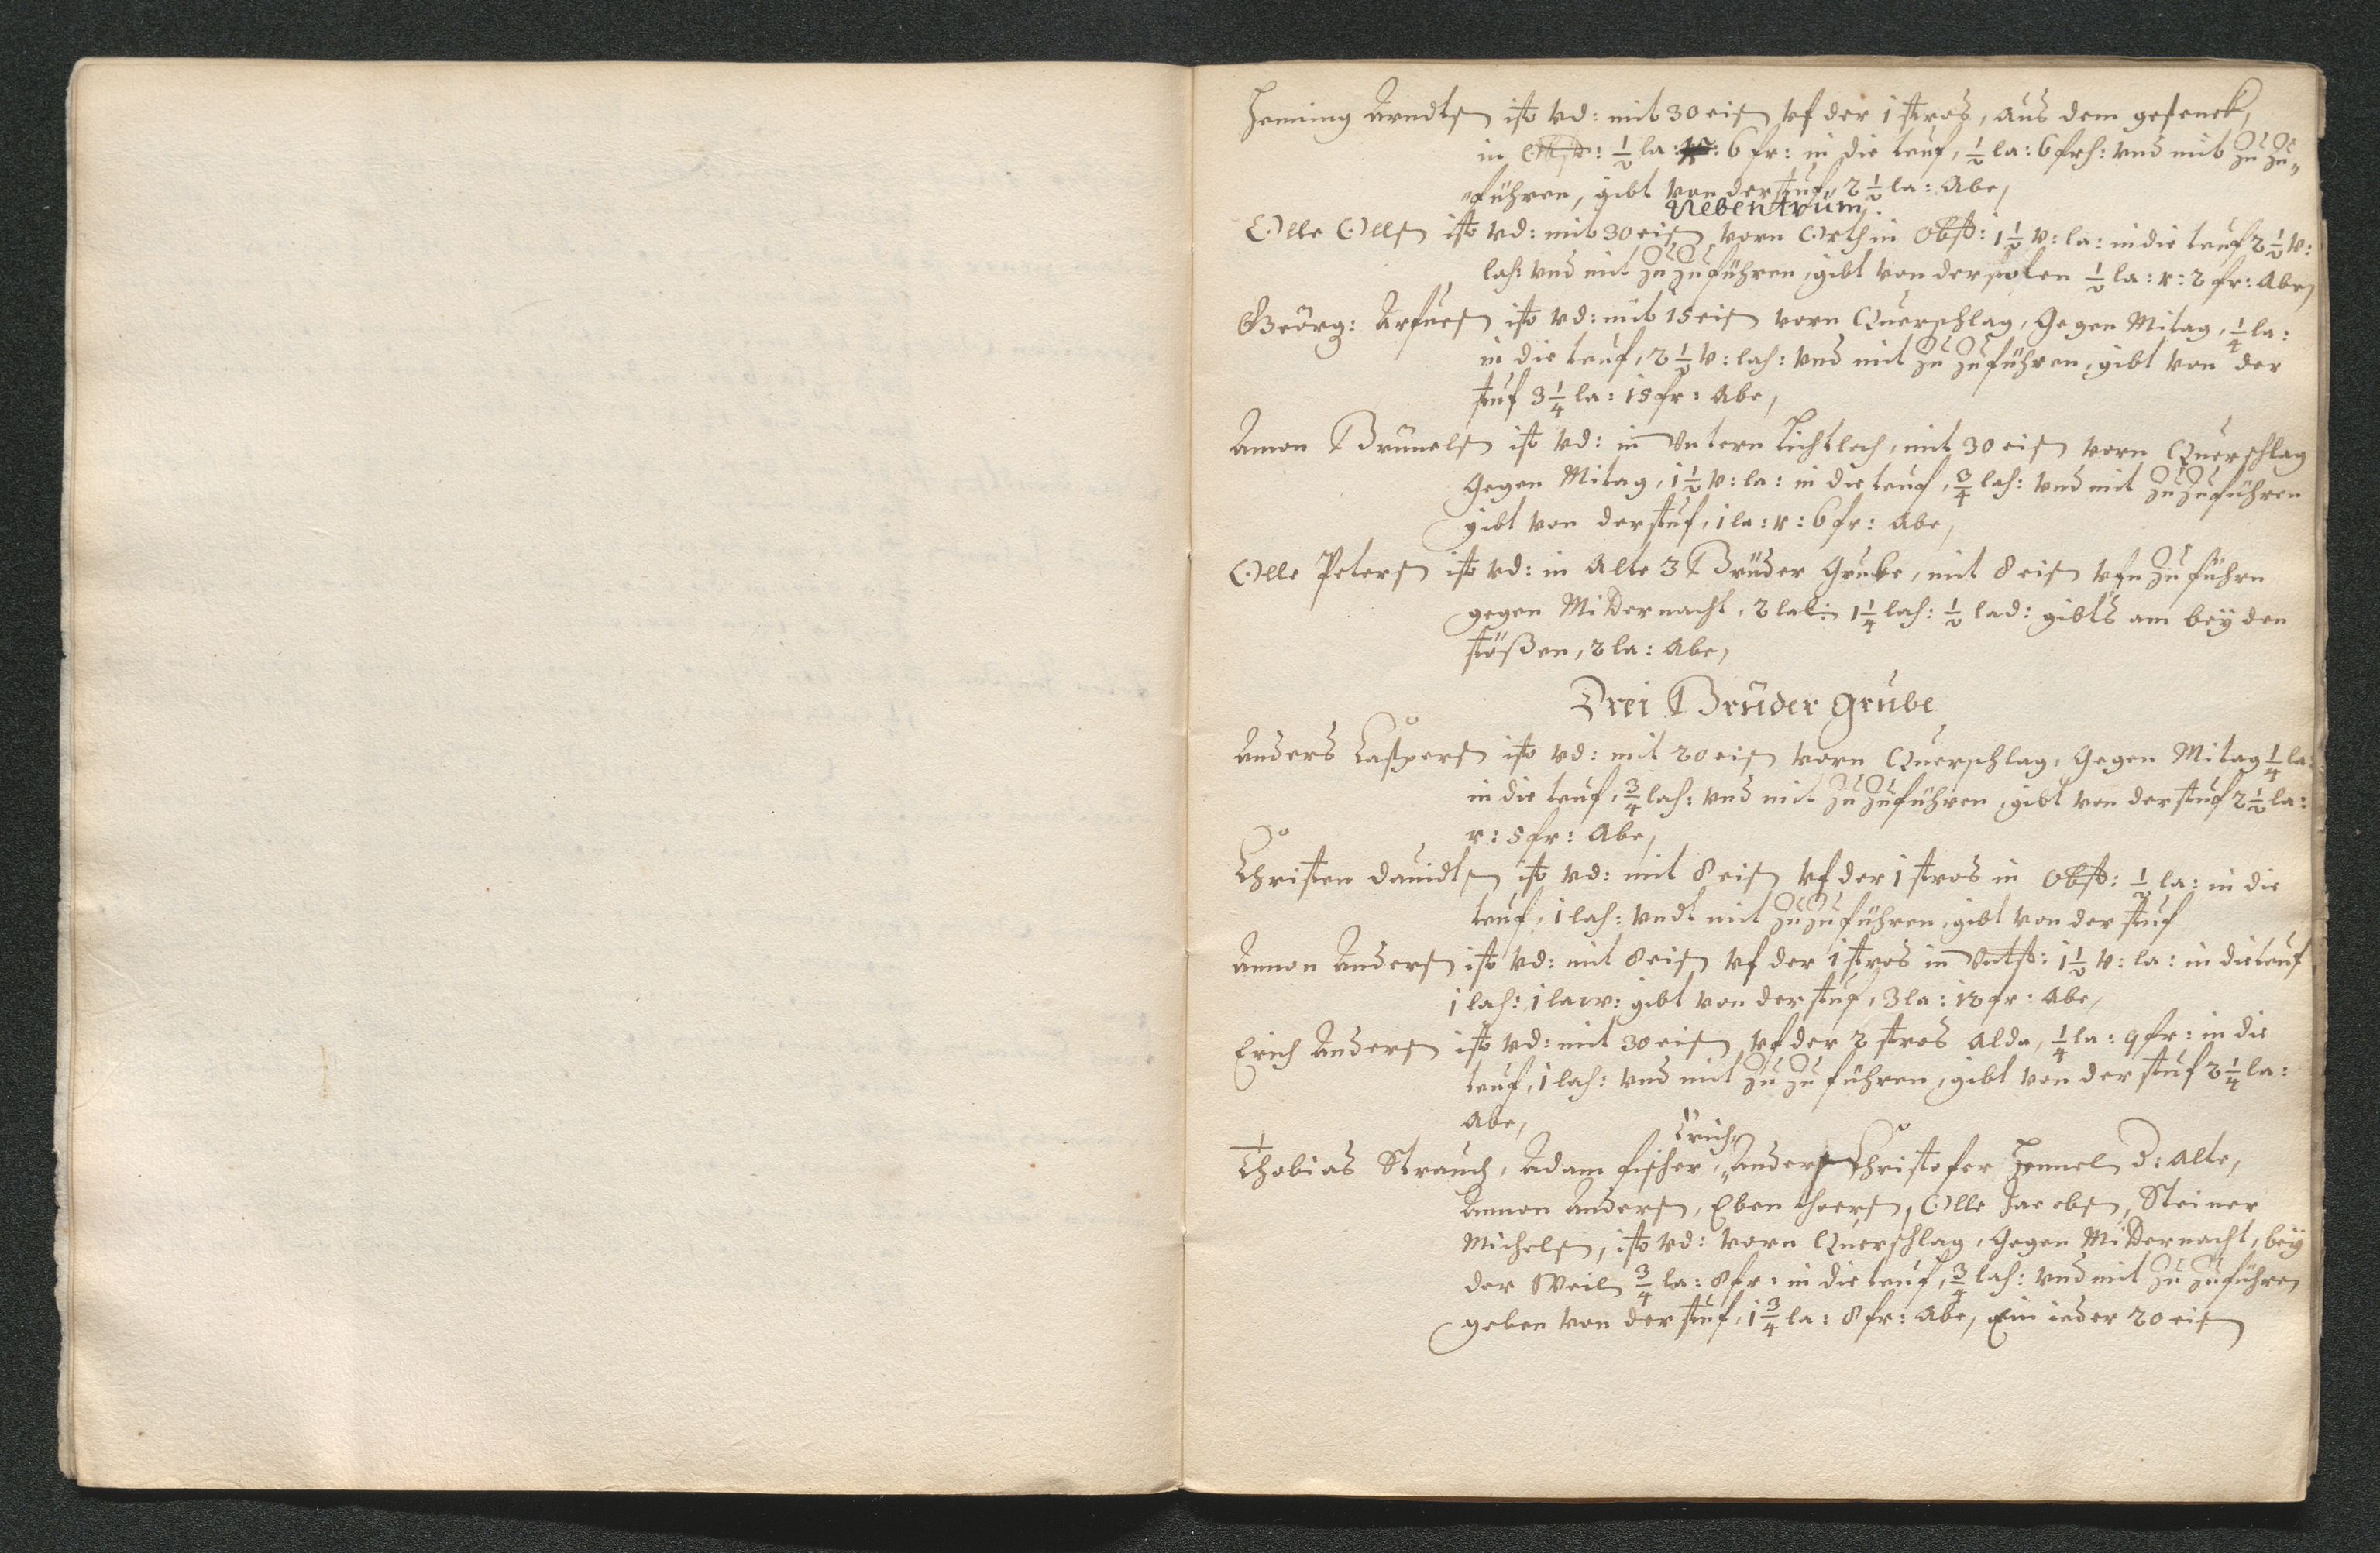 Heming Arndtsen ist vd: mit 30 eisn vf der 1 stros, aus dem gesenck,
in 1/2 la: 6 fr: in die teuf, 1/2 la: 6 frh: vnd mit zu zu„
„führen, gibt von der stuf, 2 1/2 la: Abe,
Nebentrüm,
Olle Ollsn ist vd: mit 30 eisn vorn Orth in Obst: 1 1/2 v: la: in die teuf 2 1/2 v:
lah: vnd mit zu zuführen, gibt von der stolen 1/2 la: r: 2 fr: Abe,
Geörg: ist vd: mit 15 eisn vorn Querschlag, Gegen Mitag, 1/4 la:
in die teuf, 2 1/2 v: lah: vnd mit zu zuführen, gibt von der
stuf 3 1/4 la: 15 fr: Abe,
Amon Brünelsn ist vd: in Vntern Lichtloch, mit 30 eisn vorn Querschlag
Gegen Mitag, 1 1/2 v: la: in die teuf, 3/4 lah: vnd mit zu zuführen
gibt von der stuf, 1 la: r: 6 fr: Abe,
Olle Petersn ist vd: in Alte 3 Brüder Grube, mit 8 eisn vfn zu führn
gegen Mitternacht, 2 lal: 1 1/4 lah: 1/2 lad: gibts am beyden
stößen, 2 la: Abe,
Drei Brüder grube
Anders Caspersn ist vd: mit 20 eisn vorn Querschlag, Gegen Mitag 1/4 la:
in die teuf, 3/4 lah: vnd mit zu zuführen, gibt von der stuf 2 1/2 la:
r: 5 fr: Abe,
Christen Davidtsn ist vd: mit 8 eisn vf der 1 stros in Obst: 1/2 la: in die
teuf, 1 lah: vndt mit zu zuführen, gibt von der stuf
Amon Andersn ist vd: mit 8 eisn vf der 1 stros in Vntst: 1 1/2 v: la: in die teuf
1 lah: 1 law: gibt von der stuf, 3 la: 18 fr: Abe,
Erich Andersn ist vd: mit 30 eisn vf der 2 stros alda, 1/4 la: 9 fr: in die
teuf, 1 lah: vnd mit zu zu führen, gibt von der stuf 2 1/4 la:
Abe,
Erich„
Thobias Strauch, Adam fischer, „Andersn Christofer Hemel D: Alte,
Amon Andersn, Eben Olle Jacobsn, Steiner
Michelsn, ist vd: vorn Querschlag, Gegen Mitternacht, bey
der Weil, 3/4 la: 8 fr: in die teuf, 3/4 lah: vnd mit zu zuführen
geben von der stuf, 1 3/4 la: 8 fr: Abe, Ein ieder 20 eisn